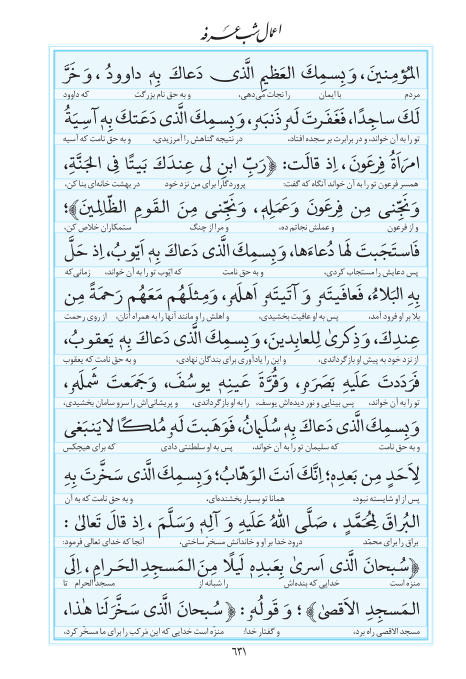 اعمال شب عرفه
المُؤمِنينَ، وَ بِسمِكَ العَظيمِ الَّذی دَعاكَ بِهٖ داوودُ، وَ خَرَّ
مردم با ایمان را نجات می‌دهی، و به حق نام بزرگت که داوود
لَكَ ساجِدًا، فَغَفَرتَ لَهٗ ذَنبَهٗ، وَ بِسمِكَ الَّذی دَعَتكَ بِهٖ آسِيَةُ
تو را به آن خواند، و در برابرت بر سجده افتاد، در نتیجه گناهش را آمرزیدی، و به حق نامت که آسیه
امرَأَةُ فِرعَونَ، اِذ قالَت: ﴿رَبِّ ابنِ لی عِندَكَ بَيتًا فِی الجَنَّةِ،
همسر فرعون تو را به آن خواند آنگاه که گفت: پروردگارا برای من نزد خود در بهشت خانه‌ای بنا کن،
وَ نَجِّنی مِن فِرعَونَ وَ عَمَلِهٖ، وَ نَجِّنی مِنَ القَومِ الظّالِمينَ﴾؛
و از فرعون و عملش نجاتم ده، و مرا از چنگ ستمکاران خلاص کن،
فَاستَجَبتَ لَها دُعاءَها، وَ بِسمِكَ الَّذی دَعاكَ بِهٖ اَيّوبُ، اِذ حَلَّ
پس دعایش را مستجاب کردی، و به حق نامت که ایّوب تو را به آن خواند، زمانی‌که
بِهِ البَلاءُ، فَعافَيتَهٗ وَ آتَيتَهٗ اَهلَهٗ، وَ مِثلَهُم مَعَهُم رَحمَةً مِن
بلا بر او فرود آمد، پس به او عافیت بخشیدی، و اهلش را و مانند آنها را به همراه آنان، از روی رحمت
عِندِكَ، وَ ذِكریٰ لِلعابِدينَ، وَ بِسمِكَ الَّذی دَعاكَ بِهٖ يَعقوبُ،
از نزد خود به پیش او بازگرداندی، و این را یادآوری برای بندگان نهادی، و به حق نامت که یعقوب
فَرَدَدتَ عَلَيهِ بَصَرَهٗ، وَ قُرَّةَ عَينِهٖ يوسُفَ، وَ جَمَعتَ شَملَهٗ،
تو را به آن خواند، پس بینایی و نور دیده‌اش یوسف، را به او بازگرداندی، و پریشانی‌اش را سر و سامان بخشیدی،
وَ بِسمِكَ الَّذی دَعاكَ بِهٖ سُلَيمانُ، فَوَهَبتَ لَهٗ مُلكًا لا يَنبَغی
و به حق نامت که سلیمان تو را به آن خواند، پس به او سلطنتی دادی که برای هیچکس
لِاَحَدٍ مِن بَعدِهٖ؛ اِنَّكَ اَنتَ الوَهّابُ؛ وَ بِسمِكَ الَّذی سَخَّرتَ بِهِ
پس از او شایسته نبود، همانا تو بسیار بخشنده‌ای، و به حق نامت که به آن
البُراقَ لِمُحَمَّدٍ، صَلَّی اللهُ عَلَيهِ وَ آلِهٖ وَ سَلَّمَ، اِذ قالَ تَعالیٰ:
براق را برای محمّد درود خدا بر او و خاندانش مسخّر ساختی، آنجا که خدای تعالی فرمود:
﴿سُبحانَ الَّذی اَسریٰ بِعَبدِهٖ لَيلًا مِنَ المَسجِدِ الحَرامِ، اِلَی
منزّه است خدایی که بنده‌اش را شبانه از مسجد الحرام تا
المَسجِدِ الاَقصیٰ﴾؛ وَ قَولُهٗ: ﴿سُبحانَ الَّذی سَخَّرَ لَنا هٰذا،
مسجد الاقصی راه برد، و گفتار خدا: منزّه است خدایی که این مَرکب را برای ما مسخّر کرد،
٦٣١